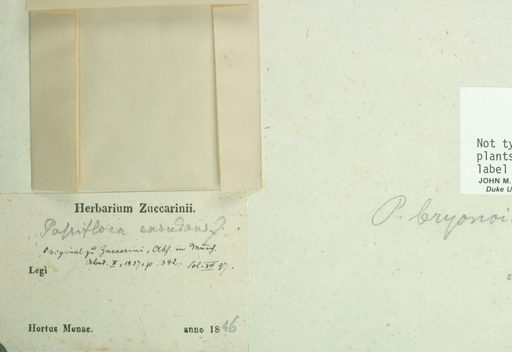 Herbarium Zuccarinii.
Passiflora exsudans Z.
Original zu Zuccarini, Abh. in Münch.
Akad. II, 1837, p. 392. Sol. XV 97.
Legi
Hortus Monac. anno 1816
P. bryonoi
Not ty
plants
label
JOHN M.
Duke U